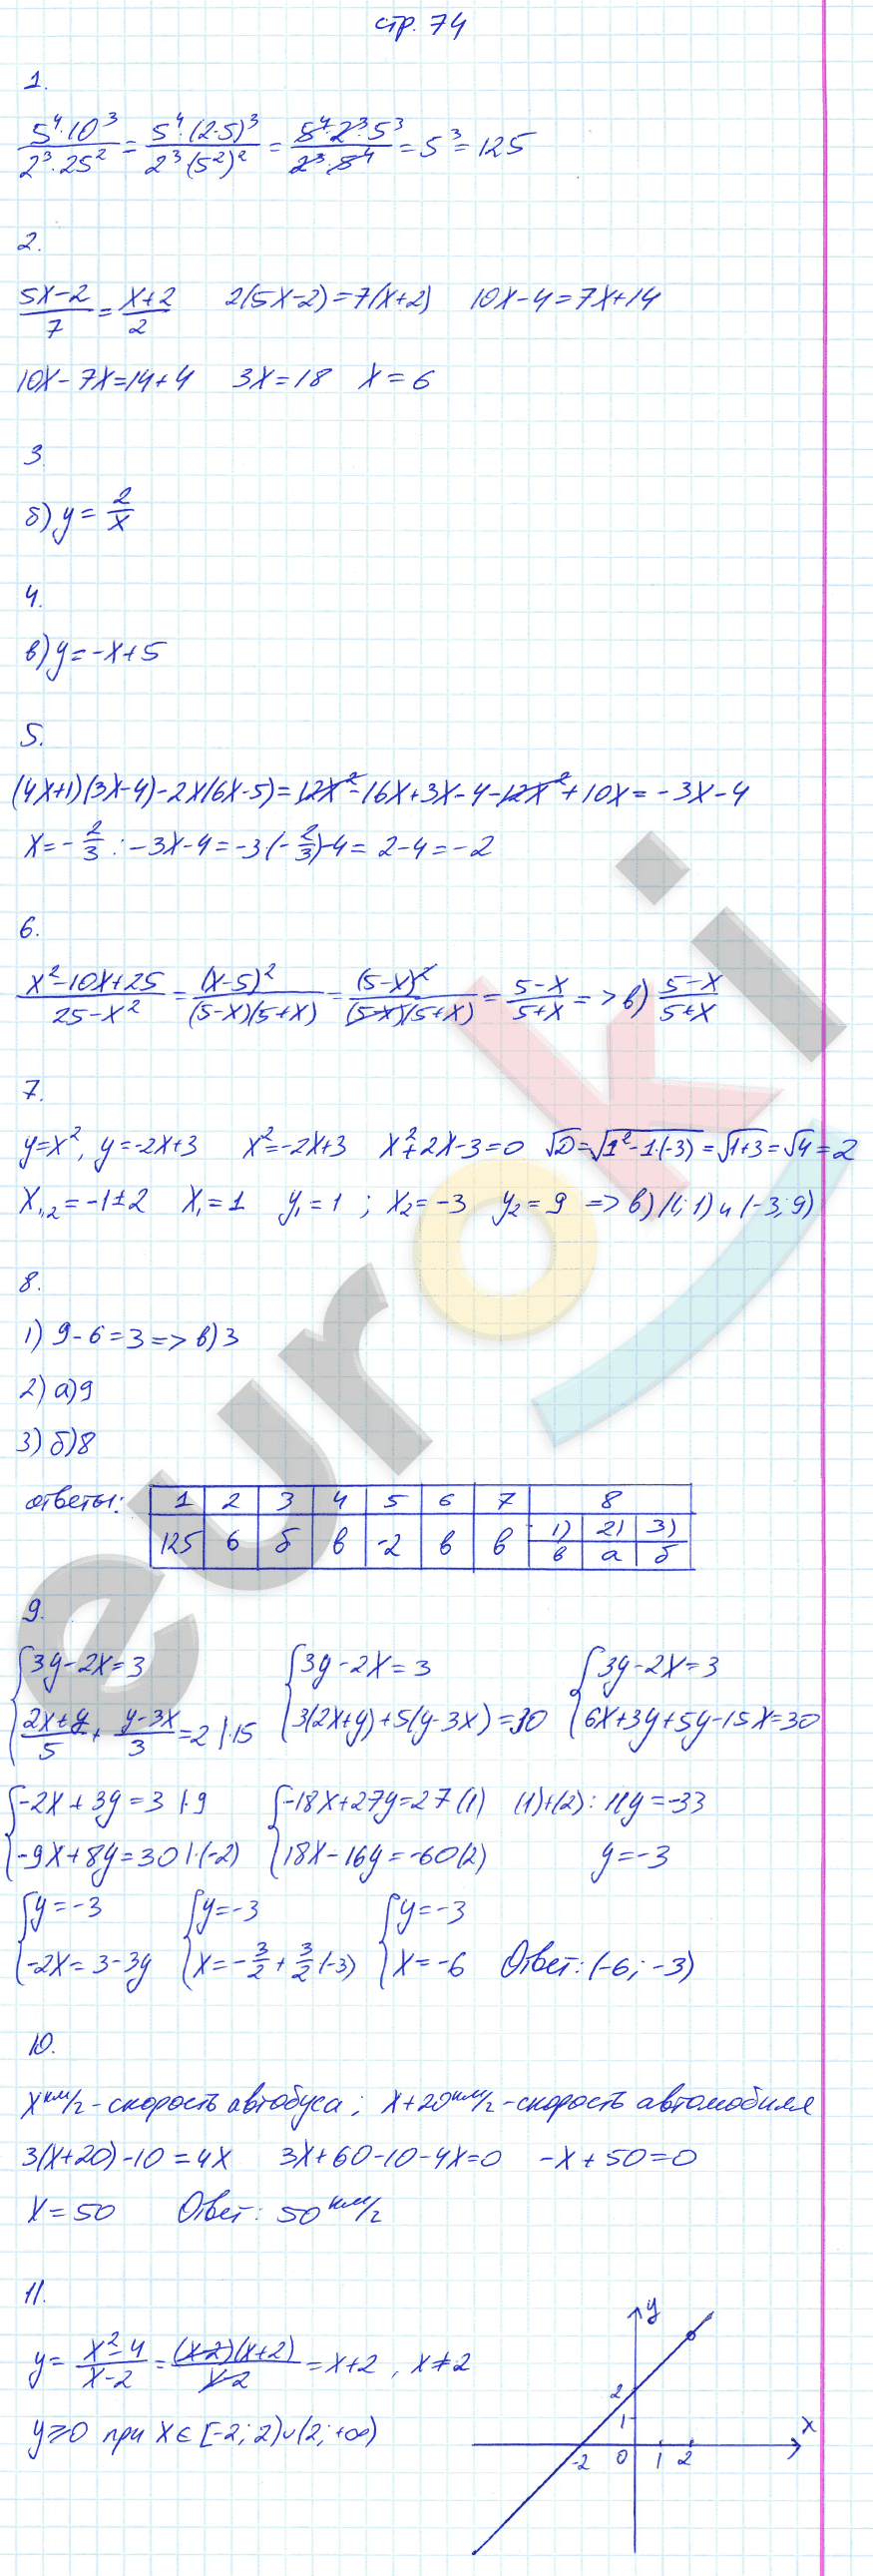 стр. 74
1.
5⁴·10³/2³·25² = 5⁴·(2·5)³/2³·(5²)² = 5⁴·2³·5³/2³·5⁴ = 5³ = 125
2.
5x-2/7 = x+2/2   2(5x-2)=7(x+2)   10x-4=7x+14
10x-7x=14+4   3x=18   x=6
3.
б) y = 2/x
4.
в) y=-x+5
5.
(4x+1)(3x-4)-2x(6x-5)=12x²-16x+3x-4-12x²+10x=-3x-4
x=-2/3 : -3x-4=-3·(-2/3)-4=2-4=-2
6.
x²-10x+25/25-x² = (x-5)²/(5-x)(5+x) = (5-x)²/(5-x)(5+x) = 5-x/5+x => в) 5-x/5+x
7.
y=x², y=-2x+3   x²=-2x+3   x²+2x-3=0   √D=√1²-1·(-3)=√1+3=√4=2
x₁,₂=-1±2   x₁=1   y₁=1 ; x₂=-3   y₂=9 => в) (1;1) и (-3;9)
8.
1) 9-6=3 => в) 3
2) а) 9
3) б) 8
ответы: 1 2 3 4 5 6 7 8
125 6 б в -2 в в 1) 2) 3)
в а б
9.
{3y-2x=3   {3y-2x=3   {3y-2x=3
2x+y/5 + y-3x/3 = 2 |·15   3(2x+y)+5(y-3x)=30   6x+3y+5y-15x=30
{-2x+3y=3 |·9   {-18x+27y=27 (1)   (1)+(2): 11y=-33
-9x+8y=30 |·(-2)   18x-16y=-60 (2)   y=-3
{y=-3   {y=-3   {y=-3
-2x=3-3y   x=-3/2+3/2·(-3)   x=-6   Ответ: (-6; -3)
10.
x км/ч - скорость автобуса; x+20 км/ч - скорость автомобиля
3(x+20)-10=4x   3x+60-10-4x=0   -x+50=0
x=50   Ответ: 50 км/ч
11.
y = x²-4/x-2 = (x-2)(x+2)/x-2 = x+2, x≠2
y≥0 при x∈[-2; 2)∪(2; +∞)
y
2
1
x
-2 0 1 2
euroki